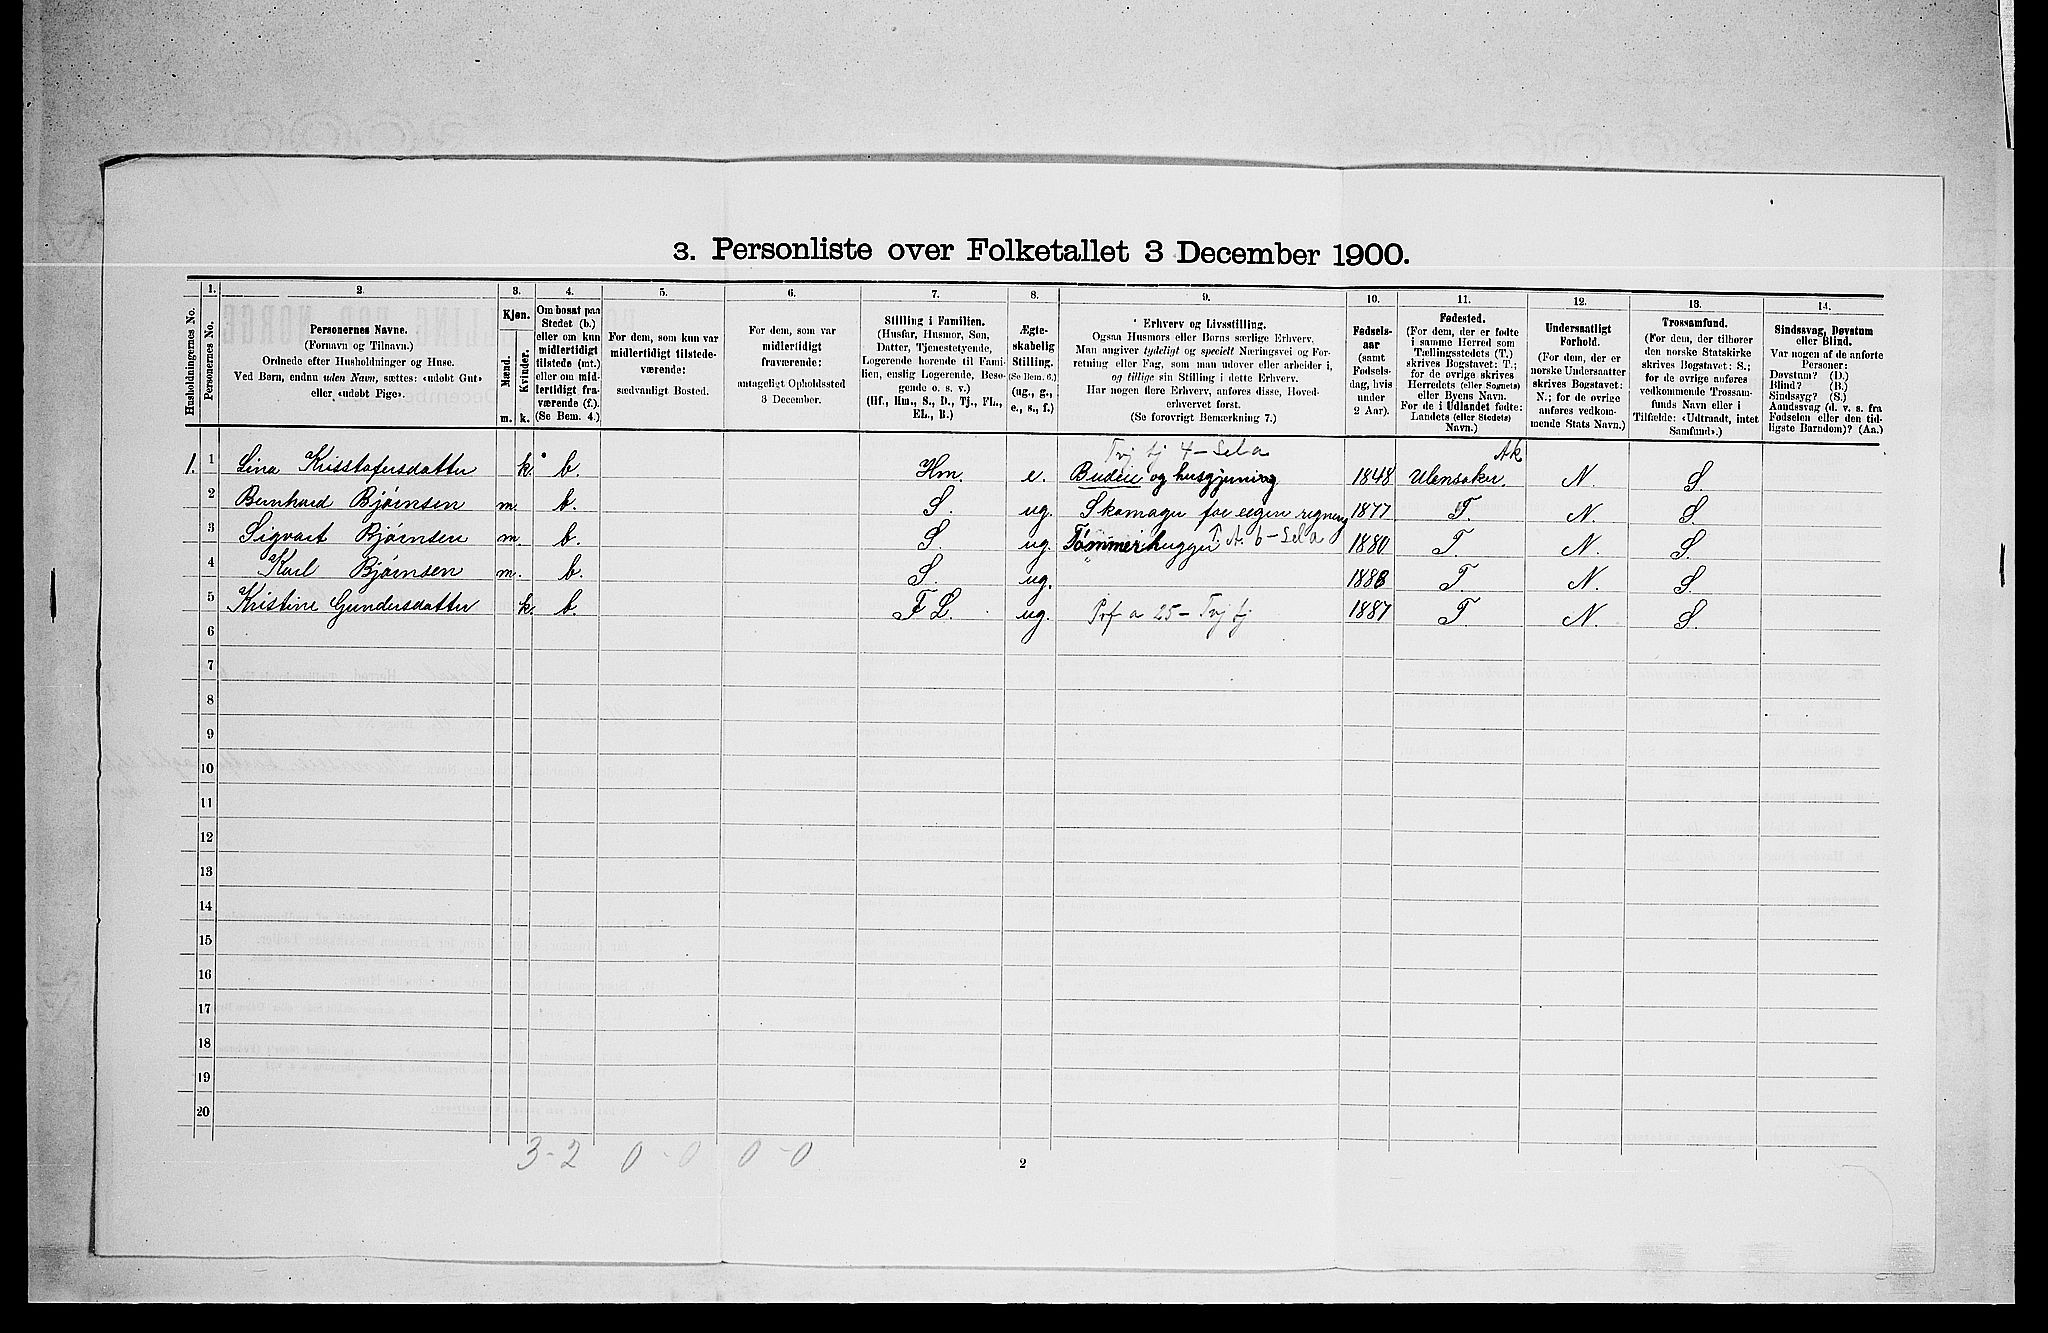 3. Personliste over Folketallet 3 December 1900.
Husholdningernes No.
1.
Personernes No.
2.
Personernes Navne.
(Fornavn og Tilnavn.)
Ordnede efter Husholdninger og Huse.
Ved Børn, endnu uden Navn, sættes: «udøbt Gut»
eller «udøbt Pige».
3.
Kjøn.
Mænd.
Kvinder.
m. k.
4.
Om bosat paa
Stedet (b.)
eller om kun
midlertidigt
tilstede (mt.)
eller om mid-
lertidigt fra-
værende (f.).
(Se Bem. 4.)
5.
For dem, som kun var
midlertidigt tilstede-
værende:
sædvanligt Bosted.
6.
For dem, som var
midlertidigt
fraværende:
antageligt Opholdssted
3 December.
7.
Stilling i Familien.
(Husfar, Husmor, Søn,
Datter, Tjenestetyende,
Logerende hørende til Fami-
lien, enslig Logerende, Besø-
gende o. s. v.)
(Hf., Hm., S., D., Tj., FL.,
EL., B.)
8.
Ægte-
skabelig
Stilling.
(Se Bem. 6.)
(ug., g.,
e., s., f.)
9.
Erhverv og Livsstilling.
Ogsaa Husmors eller Børns særlige Erhverv.
Man angiver tydeligt og specielt Næringsvei og For-
retning eller Fag, som man udover eller arbeider i,
og tillige sin Stilling i dette Erhverv.
Har nogen flere Erhverv, anføres disse, Hoved-
erhvervet først.
(Se forøvrigt Bemærkning 7.)
10.
Fødsels-
aar
(samt
Fødsels-
dag, hvis
under
2 Aar).
11.
Fødested.
(For dem, der er fødte
i samme Herred som
Tællingsstedets (T.)
skrives Bogstavet: T.;
for de øvrige skrives
Herredets (eller Sognets)
eller Byens Navn.
For de i Udlandet fødte:
Landets (eller Stedets)
Navn.)
12.
Undersaatligt
Forhold.
(For dem, der er
norske Undersaatter
skrives Bogstavet:
N.; for de øvrige
anføres vedkom-
mende Stats Navn.)
13.
Trossamfund.
(For dem, der tilhører
den norske Statskirke
skrives Bogstavet: S.;
for de øvrige anføres
vedkommende Trossam-
funds Navn eller i
Tilfælde: «Udtraadt, intet
Samfund».)
14.
Sindssvag, Døvstum
eller Blind.
Var nogen af de anførte
Personer:
Døvstum? (D.)
Blind? (B.)
Sindssyg? (S.)
Aandssvag (d. v. s. fra
Fødselen eller den tid-
ligste Barndom)? (Aa.)
Tvj tj 4 - Sel a Ak
1. 1 Lina Kristofersdatter k. b. Hm. e. Budeie og husgjerning 1848 Ulensaker. N. S.
2 Bernhard Bjørnsen m. b. S. ug. Skomager for eegen regning 1877 T. N. S.
3 Sigvart Bjørnsen m. b. S. ug. Tømmerhugger T. A. 6 - Sel a 1880 T. N. S.
4 Karl Bjørnsen m. b. S. ug. " 1888 T. N. S.
5 Kristine Gundersdatter k. b. F L. ug. Prf a 25 - Tvj tj 1887 T N. S.
6
7
8
9
10
11
12
13
14
15
16
17
18
19
20
3-2 0-0 0-0
2